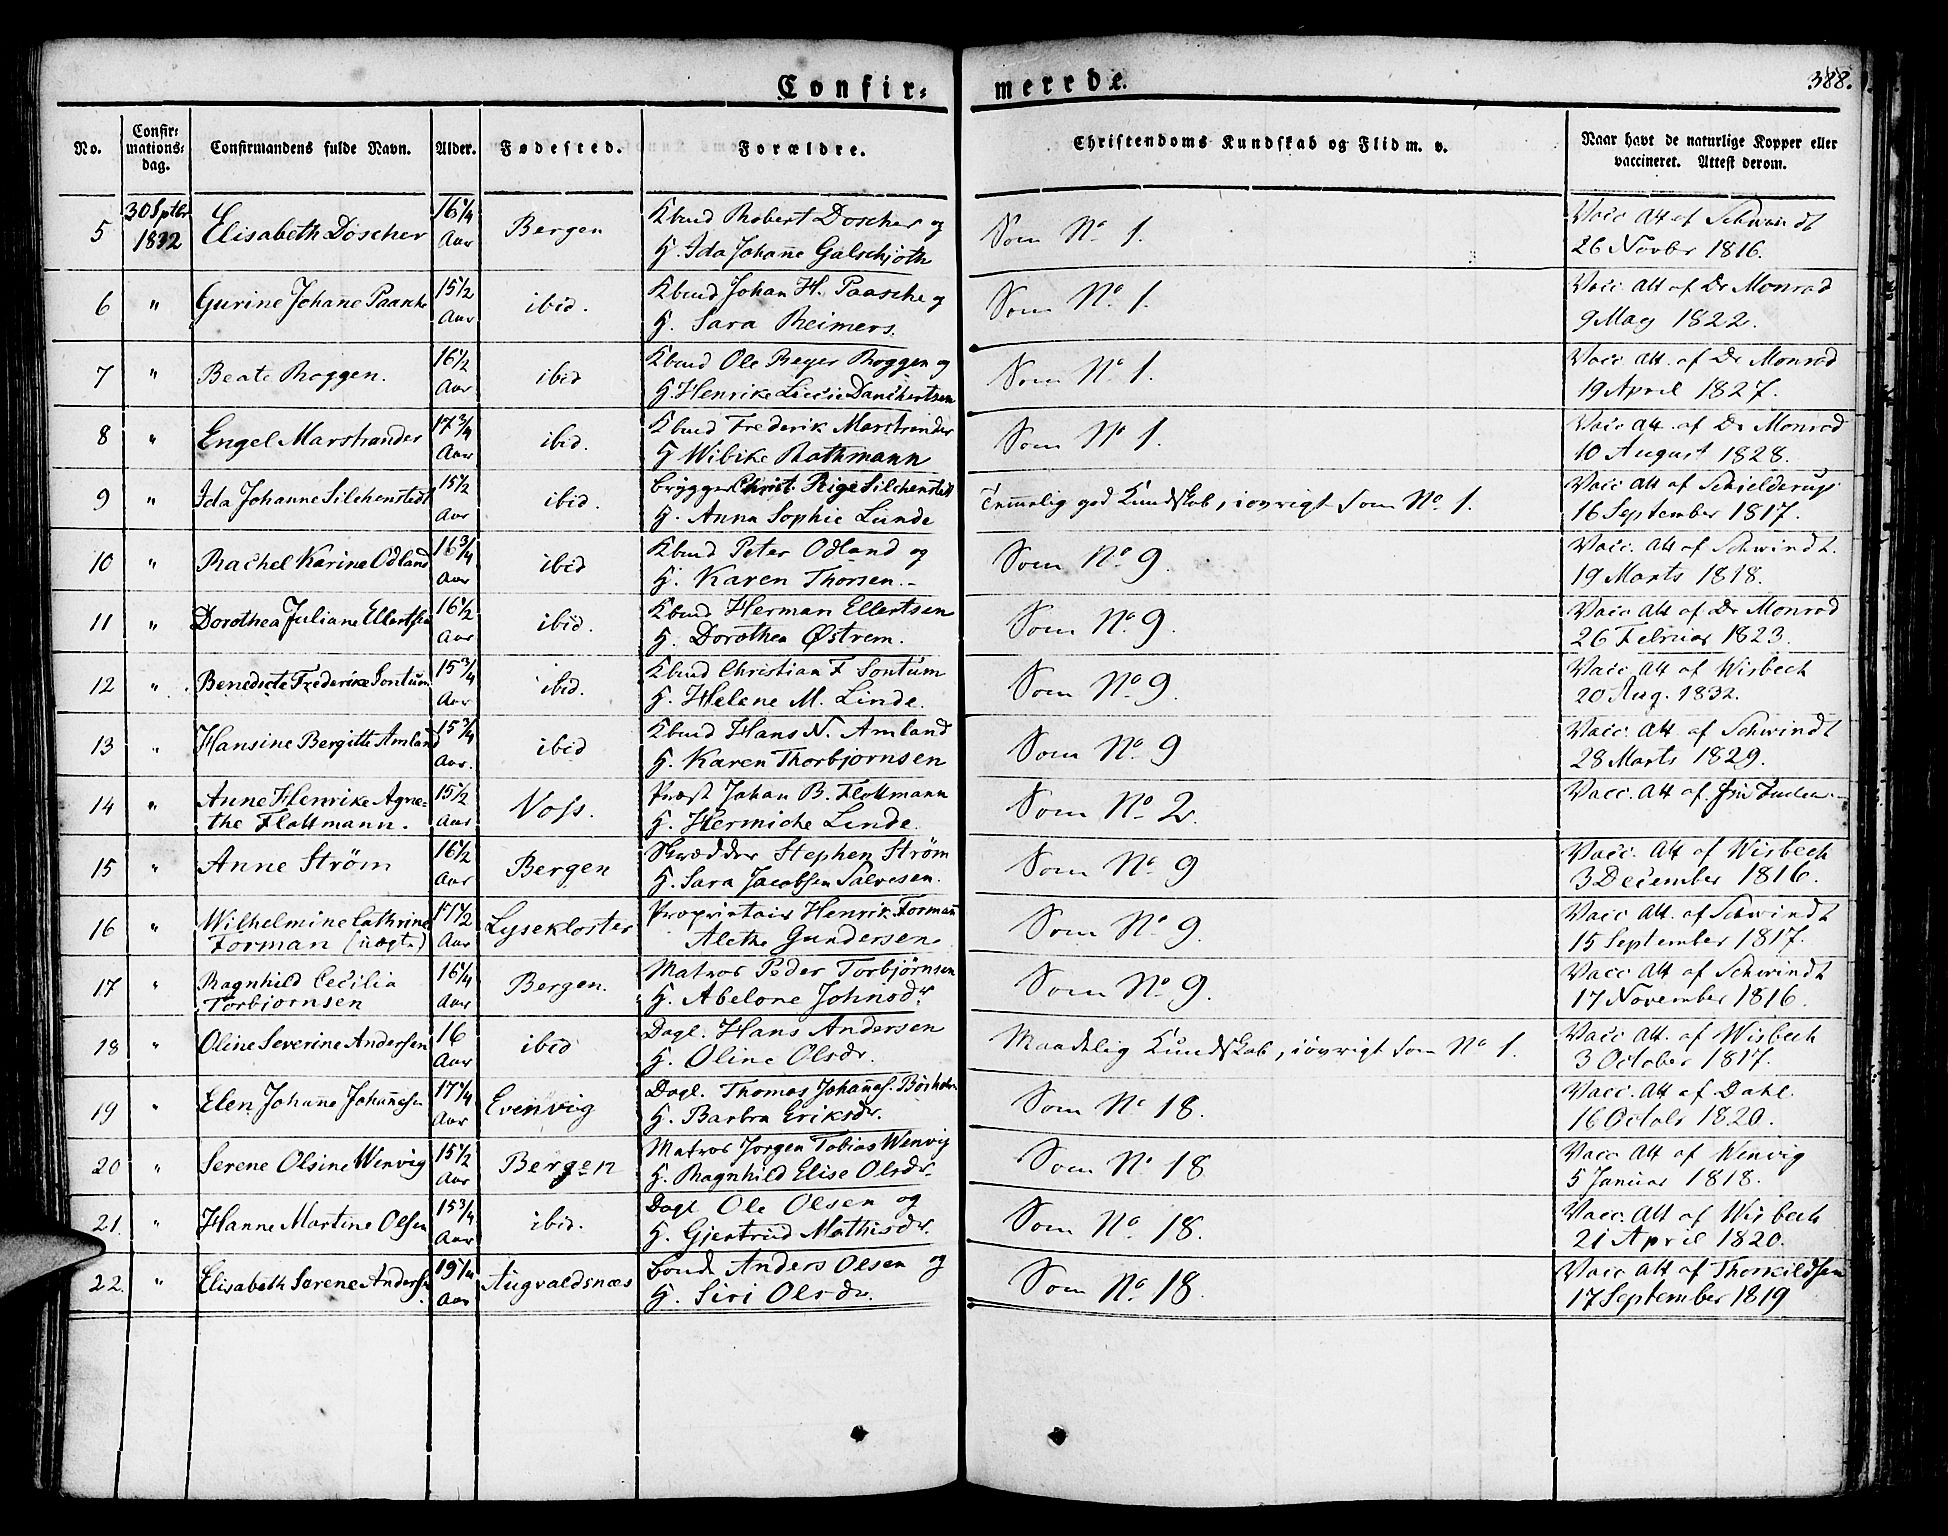 Confir= merede. 388.
No. Confir= mations= dag. Confirmandens fulde Navn. Alder. Fødested. Forældre. Christendoms Kundskab og Flid m. v. Naar havt de naturlige Kopper eller vaccineret. Attest derom.
5 30 Sptbr 1832 Elisabeth Döscher 16 1/4 Aar Bergen Kbmd Robert Doscher og H. Ida Johan̄e Galschjöth Som No. 1. Vacc Att af Schwindt 26 Novbr 1816.
6 " Gurine Johan̄e 15 1/2 Aar ibid. Kbmd Johan H. Paasche og H. Sara Reimers. Som No. 1. Vacc Att af Dr Monrad 9 May 1822.
7 " Beate Roggen. 16 1/2 Aar ibid Kbmd Ole Reyer Roggen og H. Henrike Lucie Danchertsen Som No. 1. Vacc Att. af Dr Monrad 19 April 1827.
8 " Engel Marstrander 17 3/4 Aar ibid. Kbmd Frederik Marstrander H Wibike Rathmann Som No 1. Vacc Att. af Dr Monrad 10 August 1828.
9 " Ida Johanne Silchenstedt 15 1/2 Aar ibid. Brygger Christ. Silchenstedt H. Anna Sophie Lunde Temmelig god Kundskab, iøvrigt som No. 1. Vacc Att af Schielderup 16 September 1817.
10 " Rachel Karine Odland 16 3/4 Aar ibid Kbmd Peter Odland og H. Karen Thorsen. Som No. 9. Vacc. Att af Schwindt. 19 Marts 1818.
11 " Dorothea Juliane Ellertsen 16 1/2 Aar ibid. Kbmd Herman Ellertsen H. Dorothea Østrem. Som No. 9. Vacc Att af Dr Monrad 26 Februar 1823.
12 " Benedicte Frederike Sontum 15 3/4 Aar ibid. Kbmd Christian F Sontum H. Helene M. Linde. Som No. 9. Vacc Att af Wisbech 20 Aug. 1832.
13 " Hansine Bergitte Amland 15 3/4 Aar. ibid Kbmd Hans N. Amland H. Karen Thorbjornsen Som No. 9 Vacc. Att af Schwindt 28 Marts 1829.
14 " Anne Henrike Agne= the Flottmann. 15 1/2 Aar Voss. Præst Johan B. Flottmann H. Hermiche Linde. Som No. 2. Vacc. Att af
15 " Anne Strøm 16 1/2 Aar Bergen Skrædder Stephen Strøm H. Sara Jacobsen Salvesen. Som No. 9 Vacc. Att af Wisbech 3 December 1816.
16 " Wilhelmine Cathrine Forman (uægte) 17 1/2 Aar Lysekloster Proprietair Henrik Forman̄ Alethe Gundersen. Som No. 9. Vacc Att. af Schwindt 15 September 1817.
17 " Ragnhild Cecilia Torbjornsen 16 1/4 Aar Bergen. Matros Peder Torbjørnsen H. Abelone Johnsdr. Som No. 9. Vacc Att af Schwindt 17 November 1816.
18 " Oline Severine Andersen 16 Aar ibid Dagl. Hans Andersen H. Oline Olsdr. Maadelig Kundskab, iøvrigt som No 1. Vacc Att. af Wisbech 3 October 1817.
19 " Elen Johan̄e Johan̄esen 17 1/4 Aar Evenvig Dagl. Thomas Johan̄es. H. Barbra Eriksdr. Som No 18. Vacc Att af Dahl. 16 1820.
20 " Serene Olsine Wenvig 15 1/2 Aar Bergen Matros Jorgen Tobias Wenvig H. Ragnhild Elise Olsdr. Som No 18 Vacc Att af Wenvig 5 Januar 1818.
21. " Hanne Martine Olsen 15 3/4 Aar ibid. Dagl Ole Olsen og H. Gjertrud Mathisdr. Som No. 18. Vacc. Att af Wisbech 21 April 1820.
22. " Elisabeth Serene Andersen 19 1/4 Aar Augvaldsnæs Bonde Anders Olsen og H. Siri Olsdr. Som No. 18. Vacc Att af Thorkildsen 17 September 1819